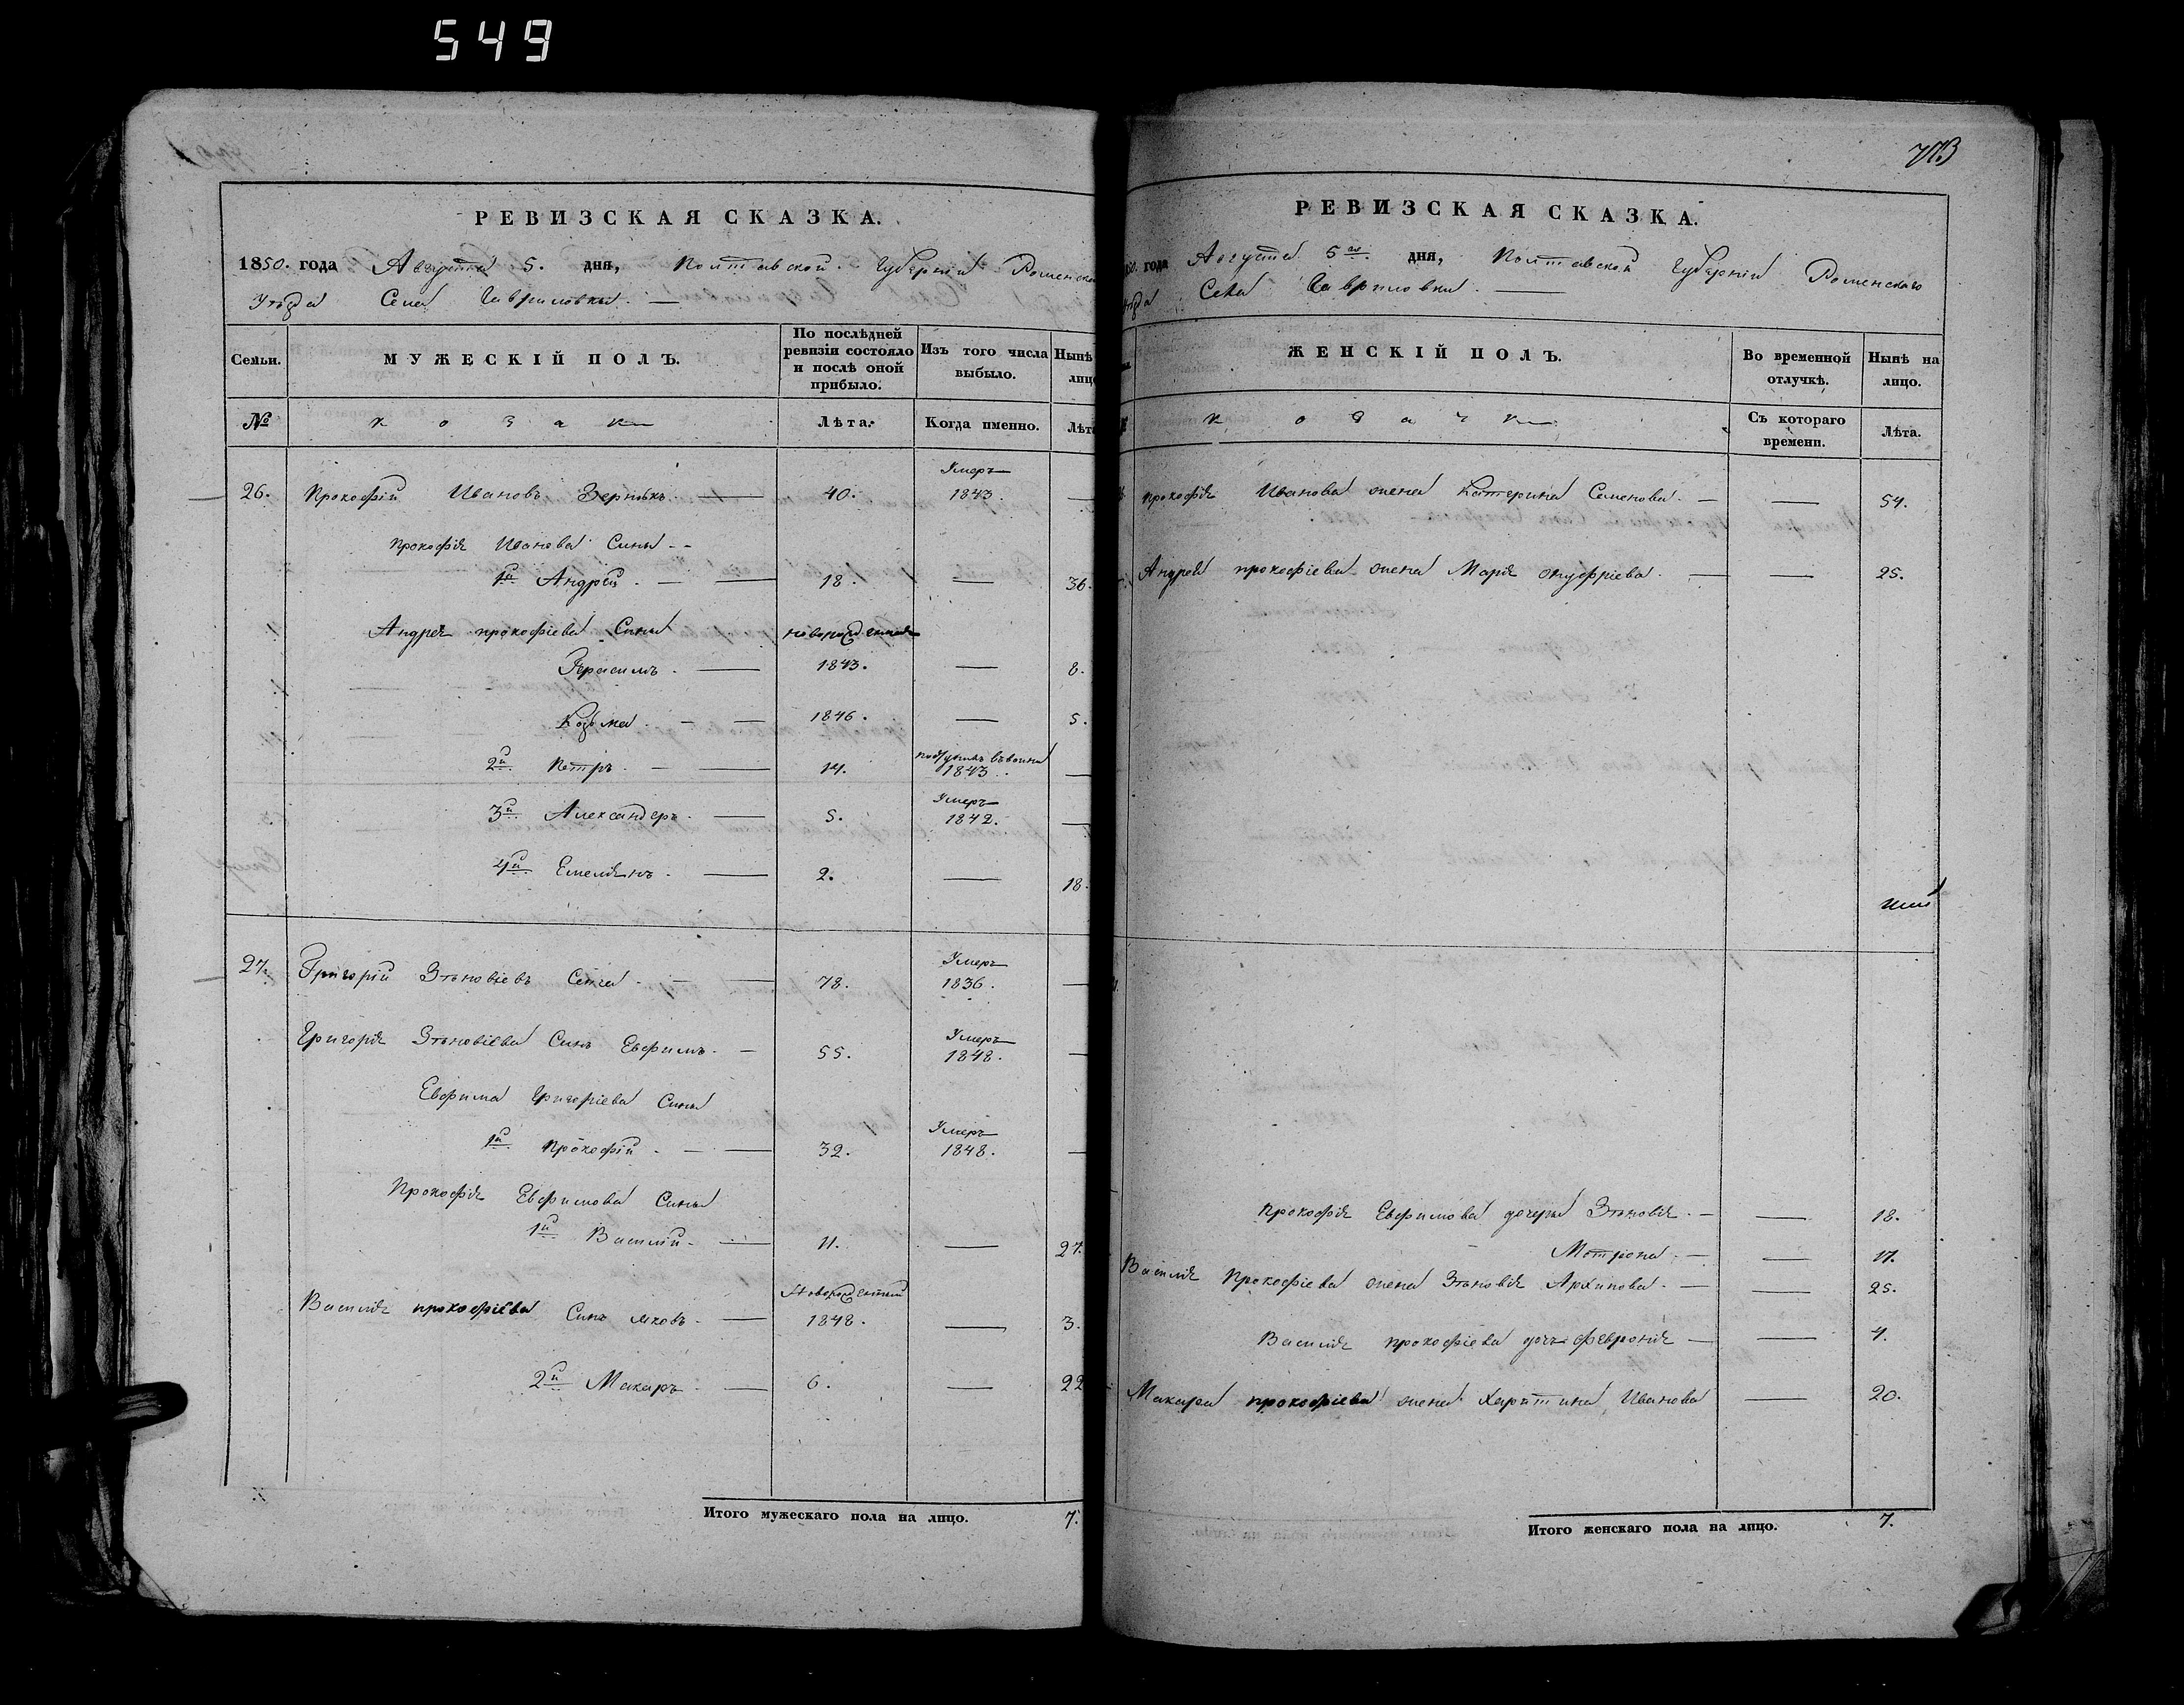 549
РЕВИЗСКАЯ СКАЗКА.
1850. года Августа 5. дня, Полтавской Губерніи Роменска
Уѣзда Села Гавриловки. —
Семьи. МУЖЕСКІЙ ПОЛЪ. По послѣдней ревизіи состояло и послѣ оной прибыло. Изъ того числа выбыло. Нынѣ лицо
№ козаки Лѣта. Когда именно. Лѣта
Умеръ
26. Прокофій Ивановъ Зернѣкъ. — 40. 1843. —
Прокофія Иванова Сины --
1й Андрей. — 18. — 36.
Андрея прокофіева Сины новорожденный
Герасимъ. — 1843. — 8.
Козьма. — 1846. — 5.
2й Петръ. — 14. 1843. —
Умеръ
3й Александеръ. — 5. 1842. —
4й Емеліянъ. — 2. — 18.
Умеръ
27. Григорій Зѣновіевъ — 78. 1836. —
Умеръ
Григорія Зѣновіева Синъ Евфимъ. — 55. 1848. —
Евфима Григоріева Сины
Умеръ
1й прокофій. — 32. 1848. —
Прокофія Евфимова Сины
1й Василій. — 11. — 27.
Новорожденный
Василія прокофіева Синъ Яковъ. — 1848. — 3.
2й Макаръ. — 6. — 22
Итого мужескаго пола на лицо. 7.
РЕВИЗСКАЯ СКАЗКА.
года Августа 5го дня, Полтавской Губерніи Роменскаго
Села Гавриловки. —
ЖЕНСКІЙ ПОЛЪ. Во временной отлучкѣ. Нынѣ на лицо.
козачки Съ котораго времени. Лѣта.
прокофія Иванова жена Катерина Семенова. — — 54.
Андрея прокофіева жена Марія Онуфріева. — — 25.
Прокофія Евфимова дочеры Зѣновія. — — 18.
Мотрона. — — 17.
Василія Прокофіева жена Зѣновія Архипова. — — 25.
Василія прокофіева дочь Февронія — — 4.
Макара прокофіева жена Харитина Иванова — 20.
Итого женскаго пола на лицо. 7.